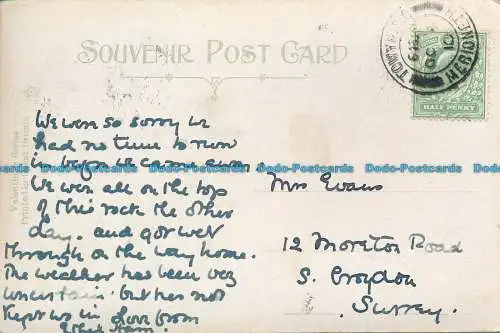 SOUVENIR POST CARD
HALF PENNY
We were so sorry we
had no time to run
in before we came away.
We were all on the top
of this rock the other
day. and got wet
through on the way home.
The weather has been very
uncertain. but has not
kept us in. Love from
Mrs Evans
12 Moreton Road
S. Croydon
Surrey.
Dodo-Postcards Dodo-Postcards Dodo-Postcards Dodo-Postcards Dodo-Postcards